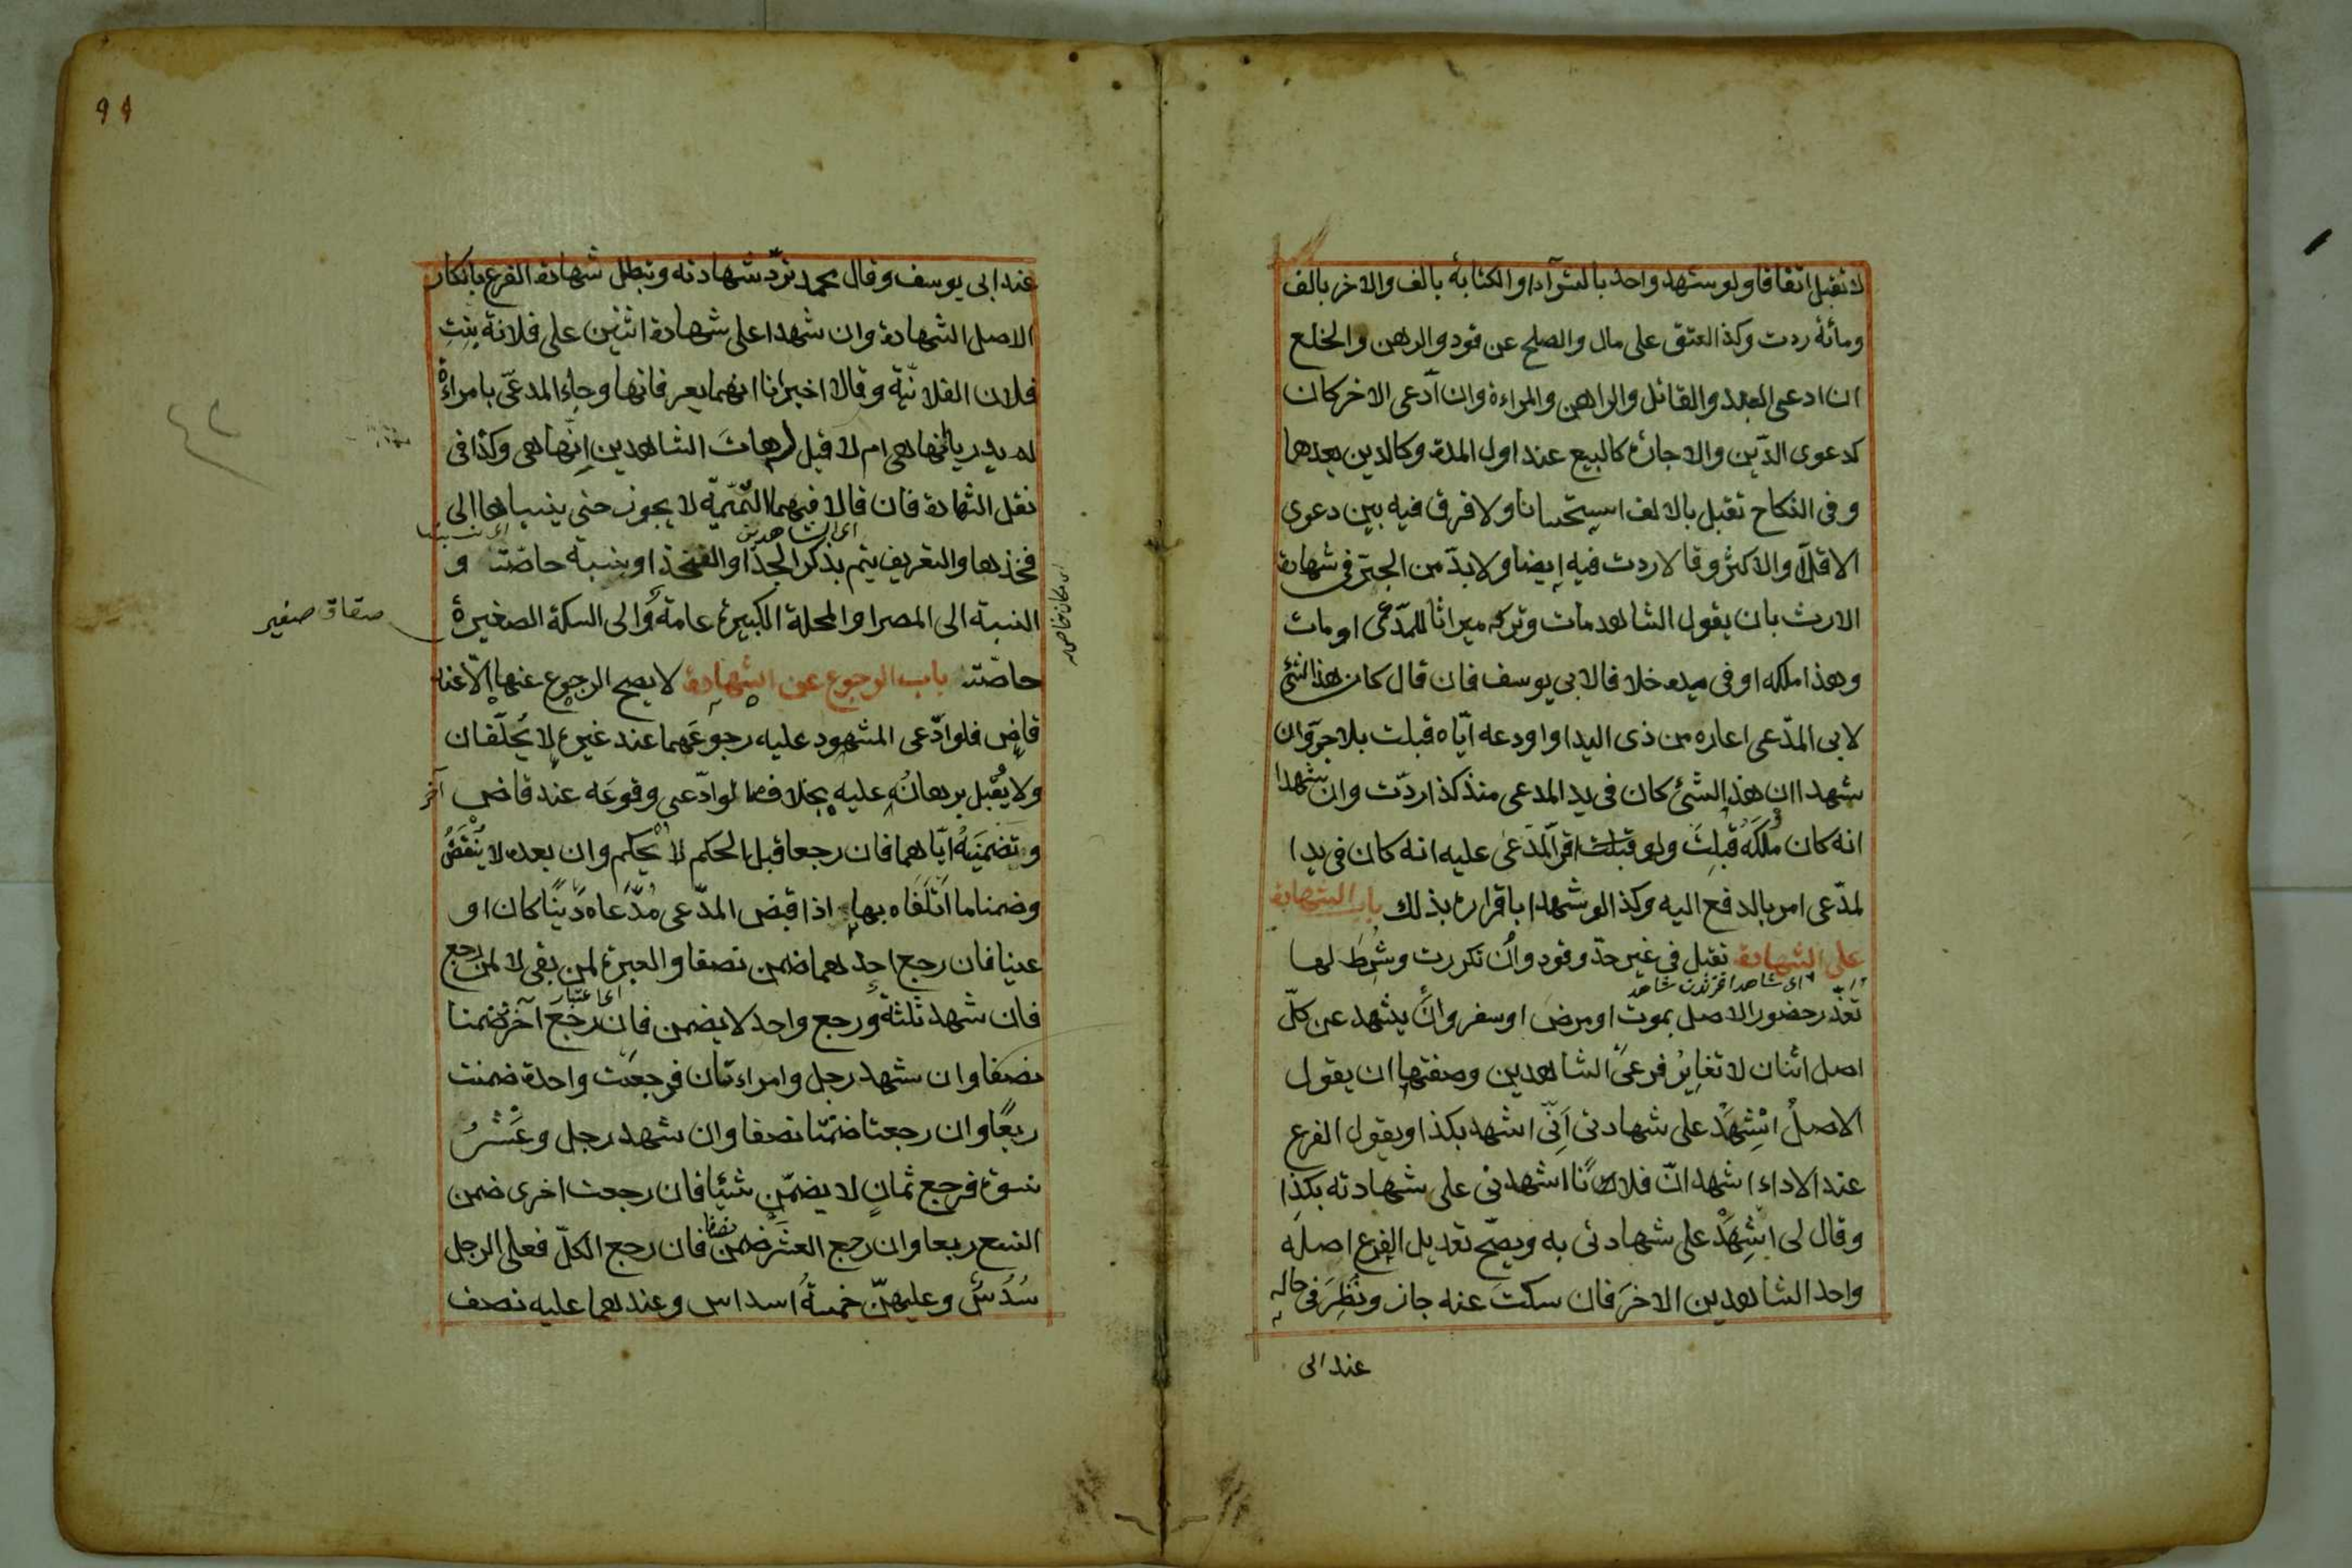 لا تقبل اتفاقا ولو شهد واحد بالشرآء او الكتابة بالف والاخر بالف
ومائة ردت وكذا العتق على مال والصلح عن قود والرهن والخلع
ان ادعى العبد والقاتل والراهن والمراءة وان آدعى الاخر كان
كدعوى الدّين والاجارة كالبيع عند اول المدة وكالدين بعدها
وفى النكاح تقبل بالالف استحسانا ولا فرق فيه بين دعوى
الاقلّ والاكثر وقالا ردت فيه ايضا ولا بدّ من الجرّ فى شهادة
الارث بان يقول الشاهد مات وتركه ميراثا للمدّعى او مات
وهذا ملكه او فى يده خلافا لابى يوسف فان قال كان هذا الشئ
لابى المدّعى اعاره من ذى اليد او اودعه آيّاه قبلت بلا جرّ وان
شهدا ان هذا الشئ كان فى يد المدعى منذ كذا ردّت وان شهدا
انه كان ملكَهُ قُبِلتْ ولو اقرّ المدّعى عليه انه كان فى يد ا
لمدّعى امر بالدفع اليه وكذا لو شهدا باقراره بذلك باب الشهادة
على الشهادة تقبل فى غير حدّ وقود وان تكررت وشُرِطَ لها
اى شاهد
تعذّر حضور الاصل بموت او مرض او سفر وان يشهد عن كلّ
اصل اثنان لا تغاير فرعى الشاهدين وصفتها ان يقول
الاصلُ اشْهَدْ على شهادتى اَنّى اشهد بكذا ويقول الفرع
عند الاداء اشهد انّ فلانًا اشهدنى على شهادته بكذا
وقال لى اشْهَدْ على شهادتى به ويصحّ تعديل الفرع اصله
واحد الشاهدين الاخرَ فان سكت عنه جاز ونُظِرَ فى حاله
عند ابى
٩٩
عند ابى يوسف وقال محمد تردّ شهادته وتبطل شهادة الفرع بانكار
الاصل الشهادة وان شهدا على شهادة اثنين على فلانة بنتِ
فلان الفلانيّة وقالا اخبرانا انهما يعرفانها وجاء المدعّى بامراءة
لم يدريا انّها هى ام لا قيل له هات الشاهدين انّها هى وكذا فى
نقل الشهادة فان قالا فيهما التّميميّة لا يجوز حتى ينسباها الى
اى الشاهدين
فخذها والتعريف يتم بذكر الجدّ او الفخذ او بنسبة خاصّة و
النسبة الى المصر او المحلة الكبيرة عامة والى السكة الصغيرة
صقاق صغير
خاصّة باب الرجوع عن الشهادة لا يصح الرجوع عنها الّا عند
قاضٍ فلو ادّعى المشهود عليه رجوعَهما عند غيره لا يُحلّفان
ولا يُقْبل برهانُه عليه بخلاف ما لو ادّعى وقوعَه عند قاضٍ آخر
وتضمينَهُ ايّاهما فان رجعا قبل الحكم لا يُحْكم وان بعده لا يُنْقَضُ
وضمنا ما اَتْلَفَاه بها اذا قبض المدّعى مُدّعَاه دَيْنًا كان او
عينا فان رجع احدهما ضمن نصفا والعبرة لمن بقى لا لمن رجع
اى اعتبار
فان شهد ثلثة ورجع واحد لا يضمن فان رجع آخر ضمنا
نصفا وان شهد رجل وامراءتان فرجعت واحدة ضمنت
ربعًا وان رجعتا ضمنتا نصفا وان شهد رجل وعَشْرُ
نسوة فرجع ثمانٍ لا يضمّن شيئا فان رجعت اخرى ضمن
التسع ربعا وان رجع العشر ضمن نصفا فان رجع الكلّ فعلى الرجل
سُدُسٌ وعليهنّ خمسةُ اسداس وعندهما عليه نصف